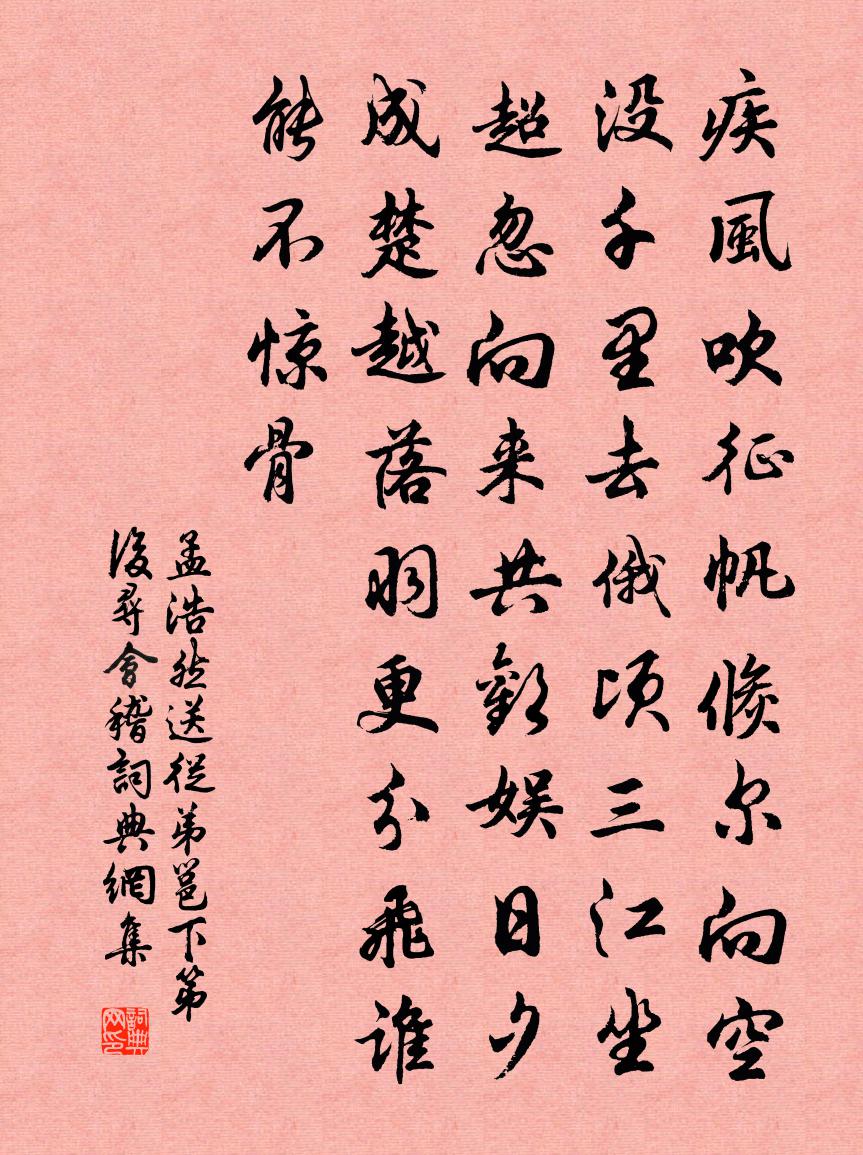 疾風吹征帆倏尔向空
没千里去俄顷三江坐
超忽向来共歡娱日夕
成楚越落羽更分飛谁
能不惊骨
孟浩然送從弟邕下第
後尋會稽詞典網集
詞典网印